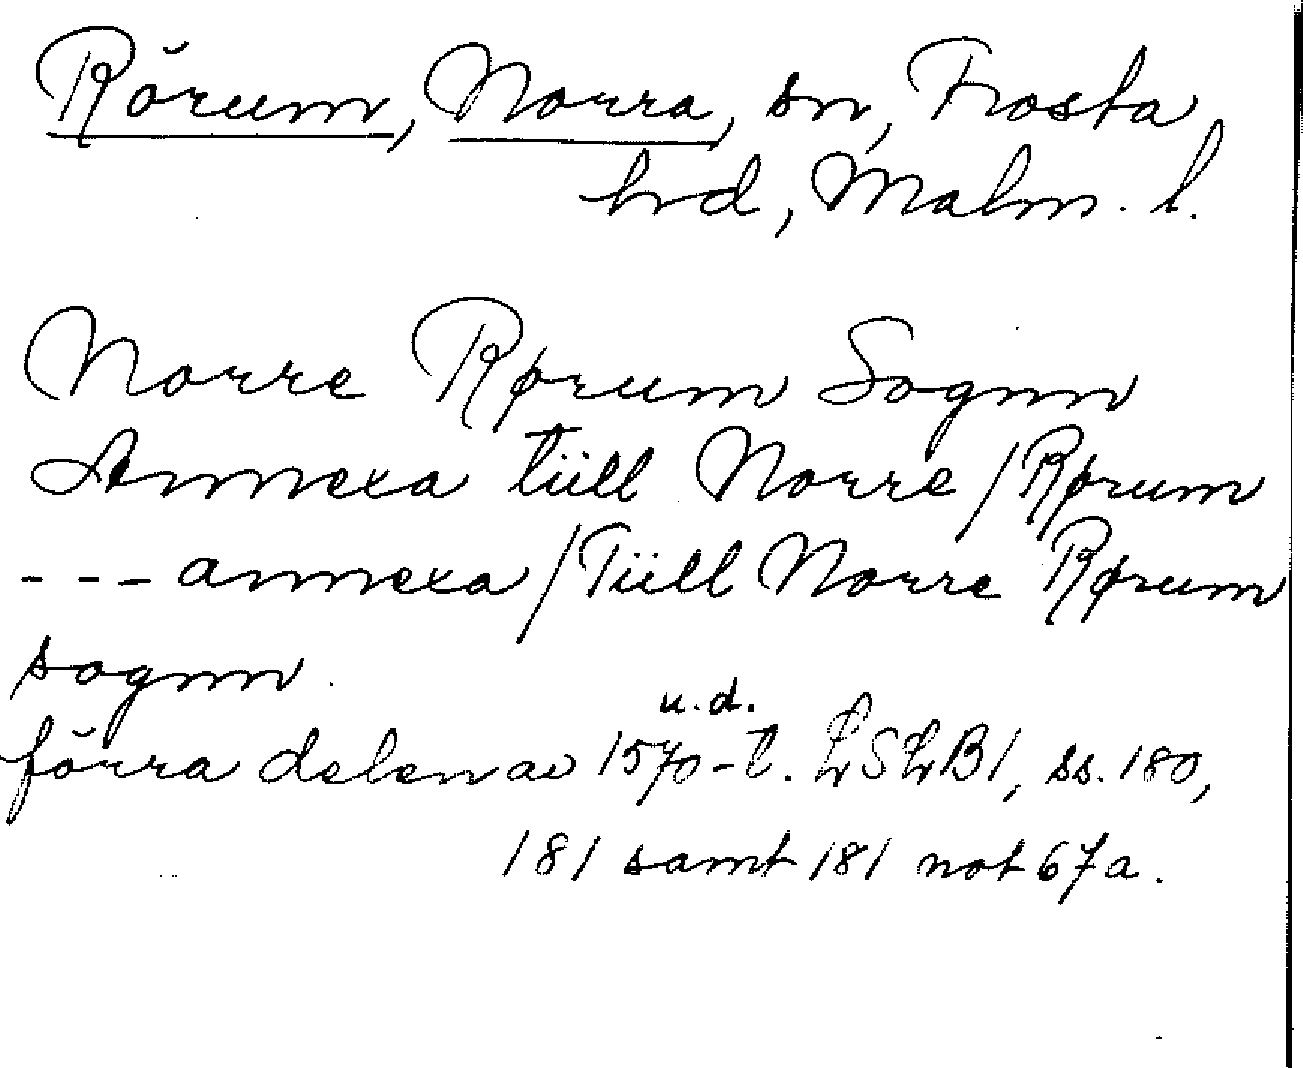 Rörum, Norra, sn, Frosta
hd, Malm. l.
Norre Rørum Sognn
Annexa tiill Norre/Rørum
---annexa/Tiill Norre Rørum
sognn.
u.d.
förra delen av 1570-t. LSLB1, ss. 180,
181 samt 181 not 67a.